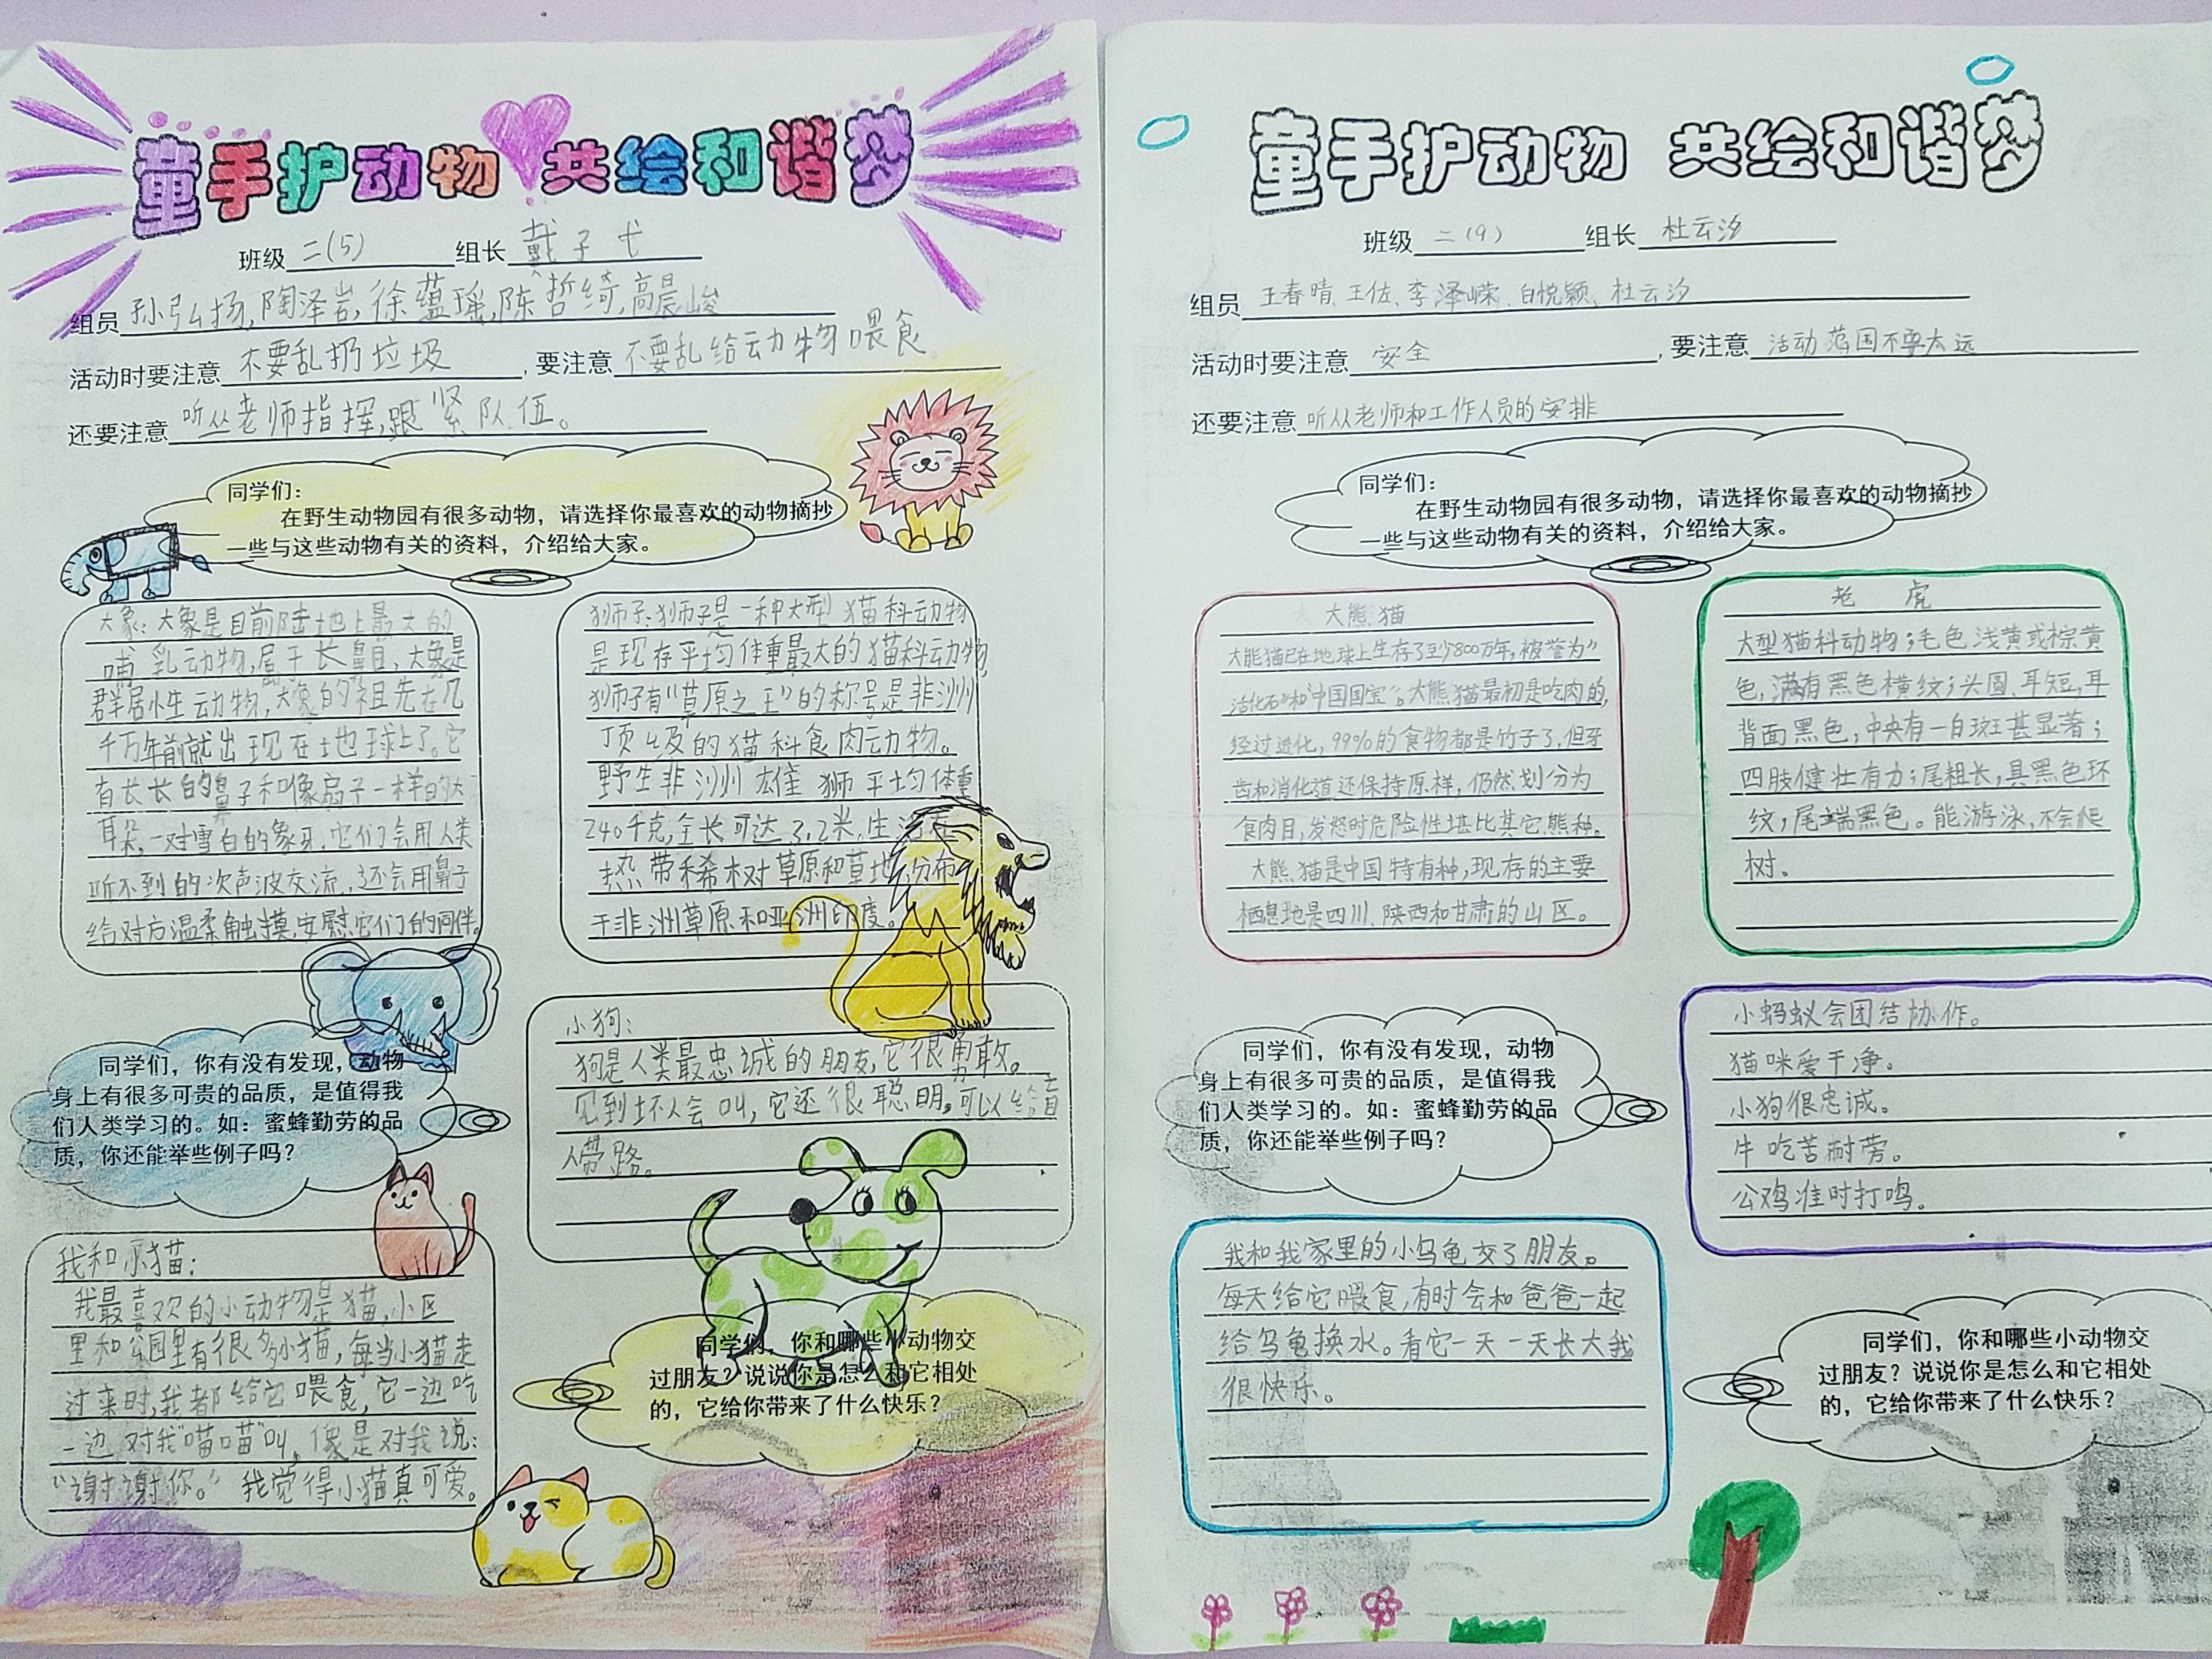 童手护动物 共绘和谐梦
班级 二(5) 组长 戴子弋
组员 孙弘扬,陶泽岩,徐蕴瑶,陈哲绮,高晨峻
活动时要注意 不要乱扔垃圾 , 要注意 不要乱给动物喂食
还要注意 听从老师指挥,跟紧队伍。
同学们：
在野生动物园有很多动物，请选择你最喜欢的动物摘抄
一些与这些动物有关的资料，介绍给大家。
大象：大象是目前陆地上最大的
哺乳动物,属于长鼻目,大象是
群居性动物,大象的祖先在几
千万年前就出现在地球上了。它
有长长的鼻子和像扇子一样的大
耳朵,一对雪白的象牙.它们会用人类
听不到的次声波交流,还会用鼻子
给对方温柔触摸,安慰它们的同伴。
狮子:狮子是一种大型猫科动物
是现存平均体重最大的猫科动物,
狮子有“草原之王”的称号是非洲
顶级的猫科食肉动物。
野生非洲雄狮平均体重
240千克,全长可达3.2米,生活在
热带稀树草原和草地,分布
于非洲草原和亚洲印度。
同学们，你有没有发现，动物
身上有很多可贵的品质，是值得我
们人类学习的。如：蜜蜂勤劳的品
质，你还能举些例子吗？
小狗：
狗是人类最忠诚的朋友,它很勇敢。
见到坏人会叫,它还很聪明,可以给盲
人带路。
我和小猫：
我最喜欢的小动物是猫,小区
里和公园里有很多小猫,每当小猫走
过来时,我都给它喂食,它一边吃
一边对我“喵喵”叫,像是对我说：
“谢谢你。”我觉得小猫真可爱。
同学们，你和哪些小动物交
过朋友？说说你是怎么和它相处
的，它给你带来了什么快乐？
童手护动物 共绘和谐梦
班级 二(9) 组长 杜云汐
组员 王春晴、王佐、李泽嵘、白悦颖、杜云汐
活动时要注意 安全 , 要注意 活动范围不要太远
还要注意 听从老师和工作人员的安排
同学们：
在野生动物园有很多动物，请选择你最喜欢的动物摘抄
一些与这些动物有关的资料，介绍给大家。
大熊猫
大熊猫已在地球上生存了至少800万年,被誉为“
活化石”和“中国国宝”。大熊猫最初是吃肉的,
经过进化,99%的食物都是竹子了,但牙
齿和消化道还保持原样,仍然划分为
食肉目,发怒时危险性堪比其它熊种。
大熊猫是中国特有种,现存的主要
栖息地是四川、陕西和甘肃的山区。
老虎
大型猫科动物;毛色浅黄或棕黄
色,满有黑色横纹;头圆、耳短,耳
背面黑色,中央有一白斑甚显著;
四肢健壮有力;尾粗长,具黑色环
纹,尾端黑色。能游泳,不会爬
树。
同学们，你有没有发现，动物
身上有很多可贵的品质，是值得我
们人类学习的。如：蜜蜂勤劳的品
质，你还能举些例子吗？
小蚂蚁会团结协作。
猫咪爱干净。
小狗很忠诚。
牛吃苦耐劳。
公鸡准时打鸣。
我和我家里的小乌龟交了朋友。
每天给它喂食,有时会和爸爸一起
给乌龟换水。看它一天一天长大我
很快乐。
同学们，你和哪些小动物交
过朋友？说说你是怎么和它相处
的，它给你带来了什么快乐？